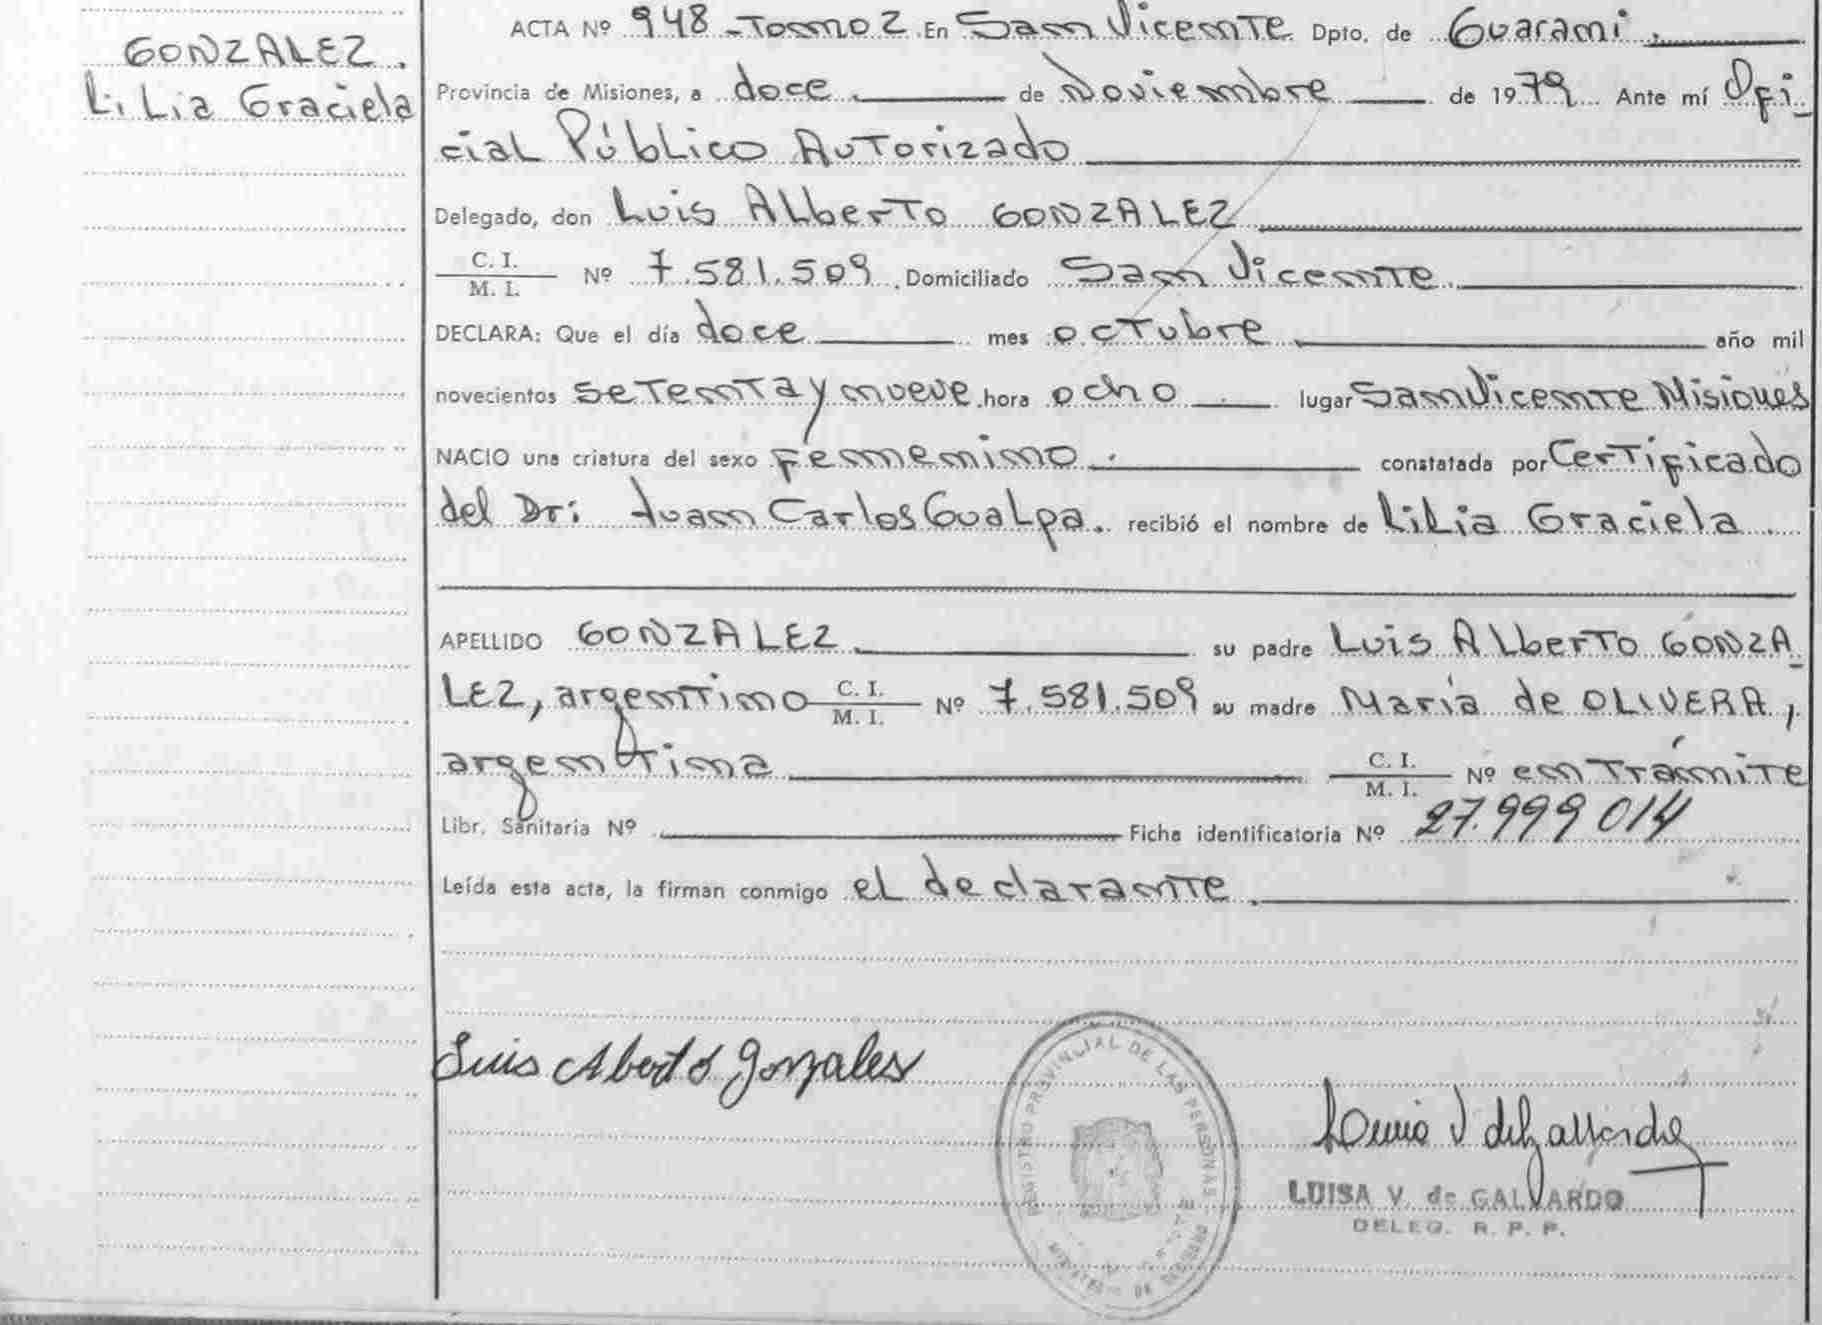 GONZALEZ.
LiLia Graciela
ACTA Nº 948 - Tomo 2. En San Vicente. Dpto. de Guaraní.
Provincia de Misiones, a doce. de Noviembre de 1979. Ante mí Ofi-
cial Público Autorizado
Delegado, don Luis ALberto GONZALEZ
C. I.
M. I. Nº 7.581.509. Domiciliado San Vicente.
DECLARA: Que el día doce mes octubre año mil
novecientos setenta y nueve. hora ocho lugar San Vicente Misiones
NACIO una criatura del sexo femenino. constatada por Certificado
del Dr: Juan Carlos Gualpa. recibió el nombre de LiLia Graciela
APELLIDO GONZALEZ su padre Luis ALberto GONZA-
LEZ, argentino C. I.
M. I. Nº 7.581.509 su madre María de OLIVERA,
argentina C. I.
M. I. Nº en Trámite
Libr. Sanitaria Nº Ficha identificatoria Nº 27.999 014
Leída esta acta, la firman conmigo el declarante.
Luis Alberto Gonzales
REGISTRO PROVINCIAL DE LAS PERSONAS
LUISA V. de GALLARDO
DELEG. R. P. P.